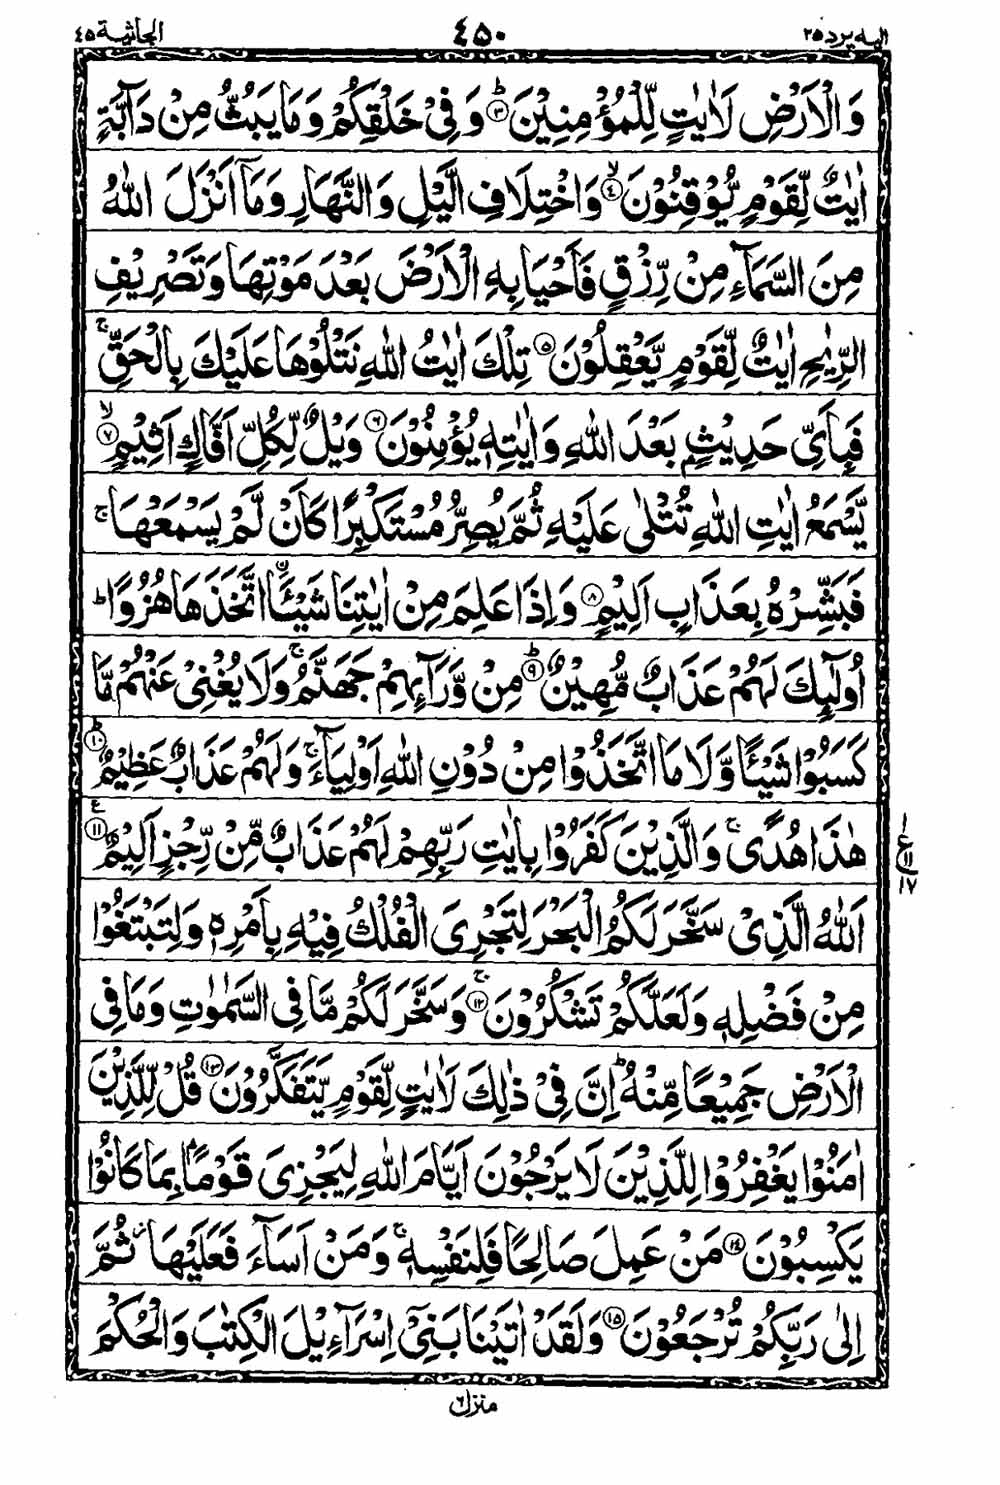 الیه یرد ۲۵ ۴۵۰ الجاثیة ۴۵
وَالْاَرْضِ لَاٰیٰتٍ لِّلْمُؤْمِنِیْنَ ؕ﴿۳﴾ وَفِیْ خَلْقِكُمْ وَمَا یَبُثُّ مِنْ دَآبَّةٍ
اٰیٰتٌ لِّقَوْمٍ یُّوْقِنُوْنَ ۙ﴿۴﴾ وَاخْتِلَافِ الَّیْلِ وَالنَّهَارِ وَمَاۤ اَنْزَلَ اللّٰهُ
مِنَ السَّمَآءِ مِنْ رِّزْقٍ فَاَحْیَا بِهِ الْاَرْضَ بَعْدَ مَوْتِهَا وَتَصْرِیْفِ
الرِّیٰحِ اٰیٰتٌ لِّقَوْمٍ یَّعْقِلُوْنَ ﴿۵﴾ تِلْكَ اٰیٰتُ اللّٰهِ نَتْلُوْهَا عَلَیْكَ بِالْحَقِّ ۚ
فَبِاَیِّ حَدِیْثٍۭ بَعْدَ اللّٰهِ وَاٰیٰتِهٖ یُؤْمِنُوْنَ ﴿۶﴾ وَیْلٌ لِّكُلِّ اَفَّاكٍ اَثِیْمٍ ۙ﴿۷﴾
یَّسْمَعُ اٰیٰتِ اللّٰهِ تُتْلٰی عَلَیْهِ ثُمَّ یُصِرُّ مُسْتَكْبِرًا كَاَنْ لَّمْ یَسْمَعْهَا ۚ
فَبَشِّرْهُ بِعَذَابٍ اَلِیْمٍ ﴿۸﴾ وَاِذَا عَلِمَ مِنْ اٰیٰتِنَا شَیْـَٔا ۨاتَّخَذَهَا هُزُوًا ؕ
اُولٰٓئِكَ لَهُمْ عَذَابٌ مُّهِیْنٌ ؕ﴿۹﴾ مِنْ وَّرَآئِهِمْ جَهَنَّمُ ۚ وَلَا یُغْنِیْ عَنْهُمْ مَّا
كَسَبُوْا شَیْـًٔا وَّلَا مَا اتَّخَذُوْا مِنْ دُوْنِ اللّٰهِ اَوْلِیَآءَ ۚ وَلَهُمْ عَذَابٌ عَظِیْمٌ ؕ﴿۱۰﴾
هٰذَا هُدًی ۚ وَالَّذِیْنَ كَفَرُوْا بِاٰیٰتِ رَبِّهِمْ لَهُمْ عَذَابٌ مِّنْ رِّجْزٍ اَلِیْمٌ ﴿۱۱﴾ع
اَللّٰهُ الَّذِیْ سَخَّرَ لَكُمُ الْبَحْرَ لِتَجْرِیَ الْفُلْكُ فِیْهِ بِاَمْرِهٖ وَلِتَبْتَغُوْا
مِنْ فَضْلِهٖ وَلَعَلَّكُمْ تَشْكُرُوْنَ ۚ﴿۱۲﴾ وَسَخَّرَ لَكُمْ مَّا فِی السَّمٰوٰتِ وَمَا فِی
الْاَرْضِ جَمِیْعًا مِّنْهُ ؕ اِنَّ فِیْ ذٰلِكَ لَاٰیٰتٍ لِّقَوْمٍ یَّتَفَكَّرُوْنَ ﴿۱۳﴾ قُلْ لِّلَّذِیْنَ
اٰمَنُوْا یَغْفِرُوْا لِلَّذِیْنَ لَا یَرْجُوْنَ اَیَّامَ اللّٰهِ لِیَجْزِیَ قَوْمًۢا بِمَا كَانُوْا
یَكْسِبُوْنَ ﴿۱۴﴾ مَنْ عَمِلَ صَالِحًا فَلِنَفْسِهٖ ۚ وَمَنْ اَسَآءَ فَعَلَیْهَا ؗ ثُمَّ
اِلٰی رَبِّكُمْ تُرْجَعُوْنَ ﴿۱۵﴾ وَلَقَدْ اٰتَیْنَا بَنِیْۤ اِسْرَآءِیْلَ الْكِتٰبَ وَالْحُكْمَ
۱
ع ۱۱
۱۷
منزل ۶